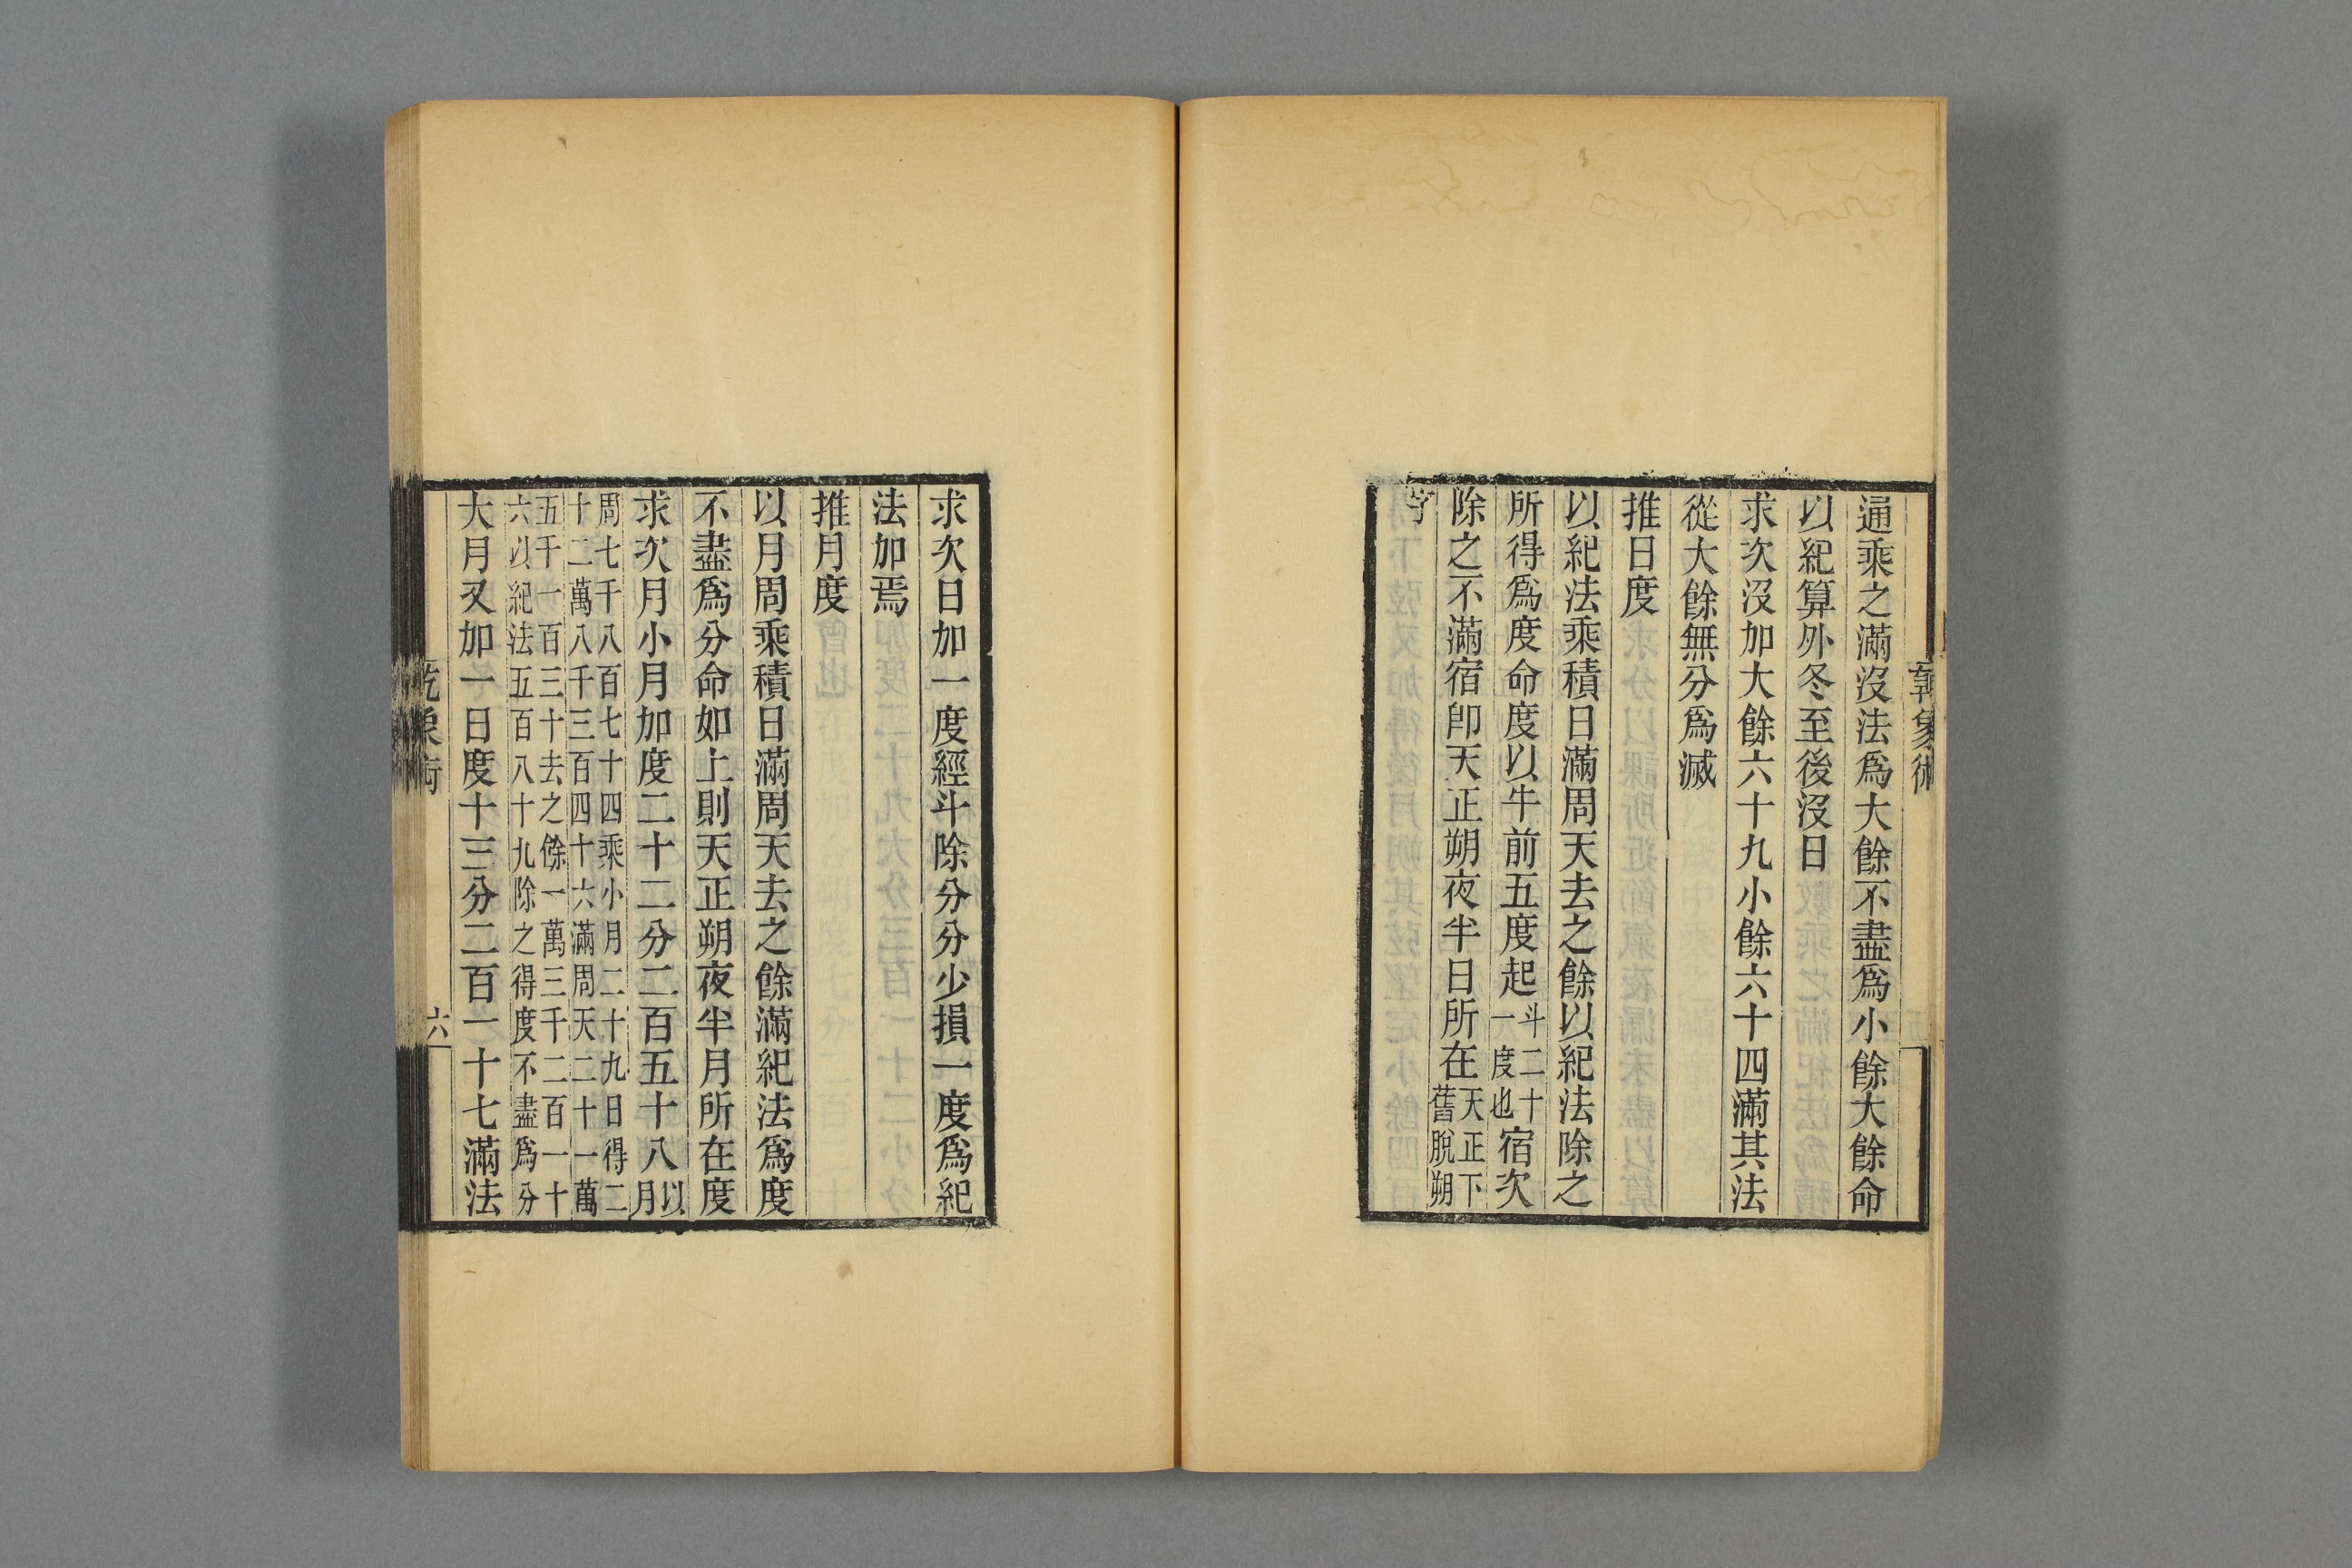 通乘之滿沒法爲大餘不盡爲小餘大餘命
以紀算外冬至後沒日
求次沒加大餘六十九小餘六十四滿其法
從大餘無分爲滅
推日度
以紀法乘積日滿周天去之餘以紀法除之
所得爲度命度以牛前五度起斗二十一度也宿次
除之不滿宿卽天正朔夜半日所在天正下舊脫朔
字
求次日加一度經斗除分分少損一度爲紀
法加焉
推月度
以月周乘積日滿周天去之餘滿紀法爲度
不盡爲分命如上則天正朔夜半月所在度
求次月小月加度二十二分二百五十八以月
周七千八百七十四乘小月二十九日得二
十二萬八千三百四十六滿周天二十一萬
五千一百三十去之餘一萬三千二百一十
六以紀法五百八十九除之得度不盡爲分
大月又加一日度十三分二百一十七滿法
乾象術
六